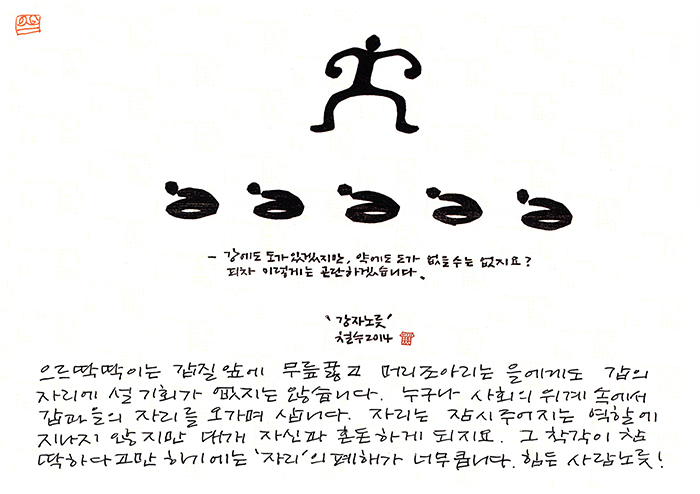 - 강에도 도가 있겠지만, 약에도 도가 없을수는 없지요?
피차 이렇게는 곤란하겠습니다.
'강자노릇'
철수2014
으르딱딱이는 갑질앞에 무릎꿇고 머리조아리는 을에게도 갑의
자리에 설 기회가 없지는 않습니다. 누구나 사회의 위계 속에서
갑과 을의 자리를 오가며 삽니다. 자리는 잠시주어지는 역할에
지나지 않지만 대개 자신과 혼돈하게 되지요. 그 착각이 참
딱하다고만 하기에는 '자리'의 폐해가 너무큽니다. 힘든 사람노릇!